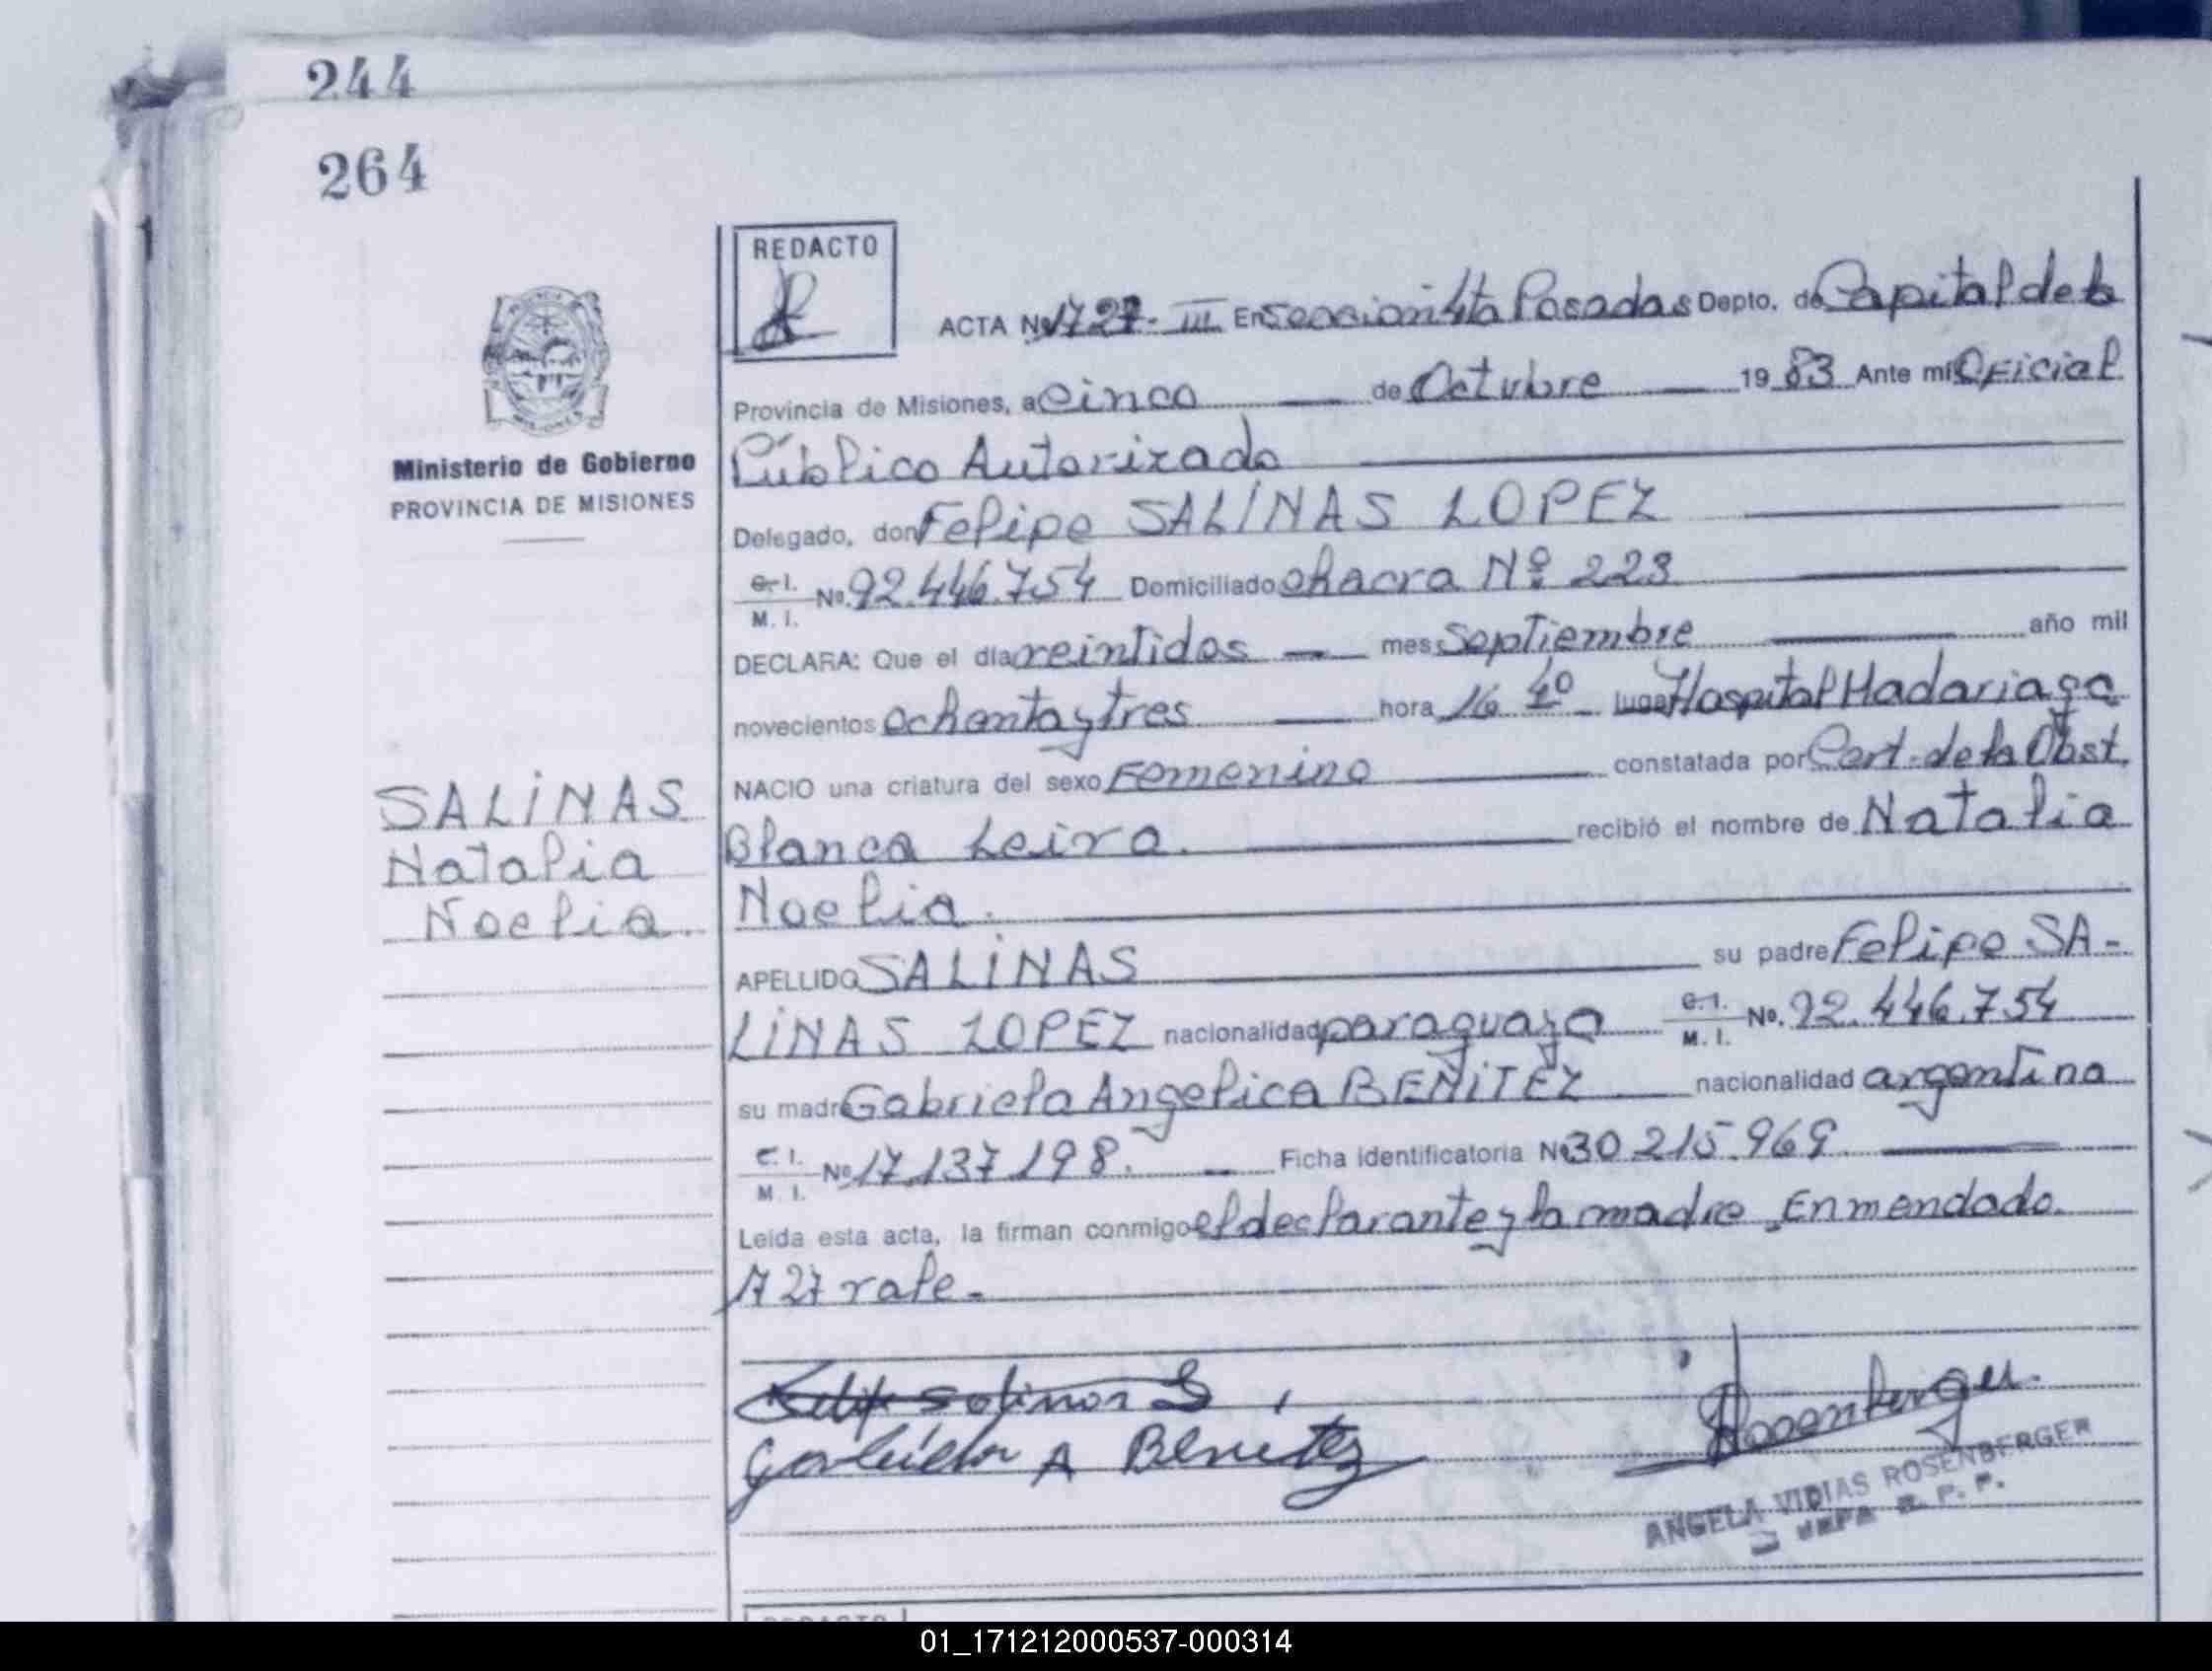 244
264
REDACTO
ACTA Nº 1727- III En seccion 4ta Posadas Depto. de Capital de la
Provincia de Misiones, a cinco de Octubre 1983 Ante mi Oficial
Público Autorizado
Ministerio de Gobierno
PROVINCIA DE MISIONES
Delegado, don Felipe SALINAS LOPEZ
C. I. M. I. Nº. 92.446.754 Domiciliado chacra Nº 223
DECLARA: Que el día veintidos mes Septiembre año mil
novecientos ochenta y tres hora 16 40 lugar Hospital Madariaga
NACIO una criatura del sexo Femenino constatada por Cert. de la Obst.
Blanca Leiva. recibió el nombre de Natalia
Noelia.
SALINAS
Natalia
Noelia.
APELLIDO SALINAS su padre Felipe SA-
LINAS LOPEZ nacionalidad paraguaya C. I. M. I. Nº. 92.446.754
su madre Gabriela Angelica BENITEZ nacionalidad argentina
C. I. M. I. Nº 17.137.198. Ficha identificatoria Nº 30.215.969
Leída esta acta, la firman conmigo el declarante y la madre. Enmendado.
1727 vale.
Felipe Salinas L
Gabriela A Benitez
Rosenberger
ANGELA VIDIAS ROSENBERGER
JEFA R. P. P.
REDACTO
01_171212000537-000314